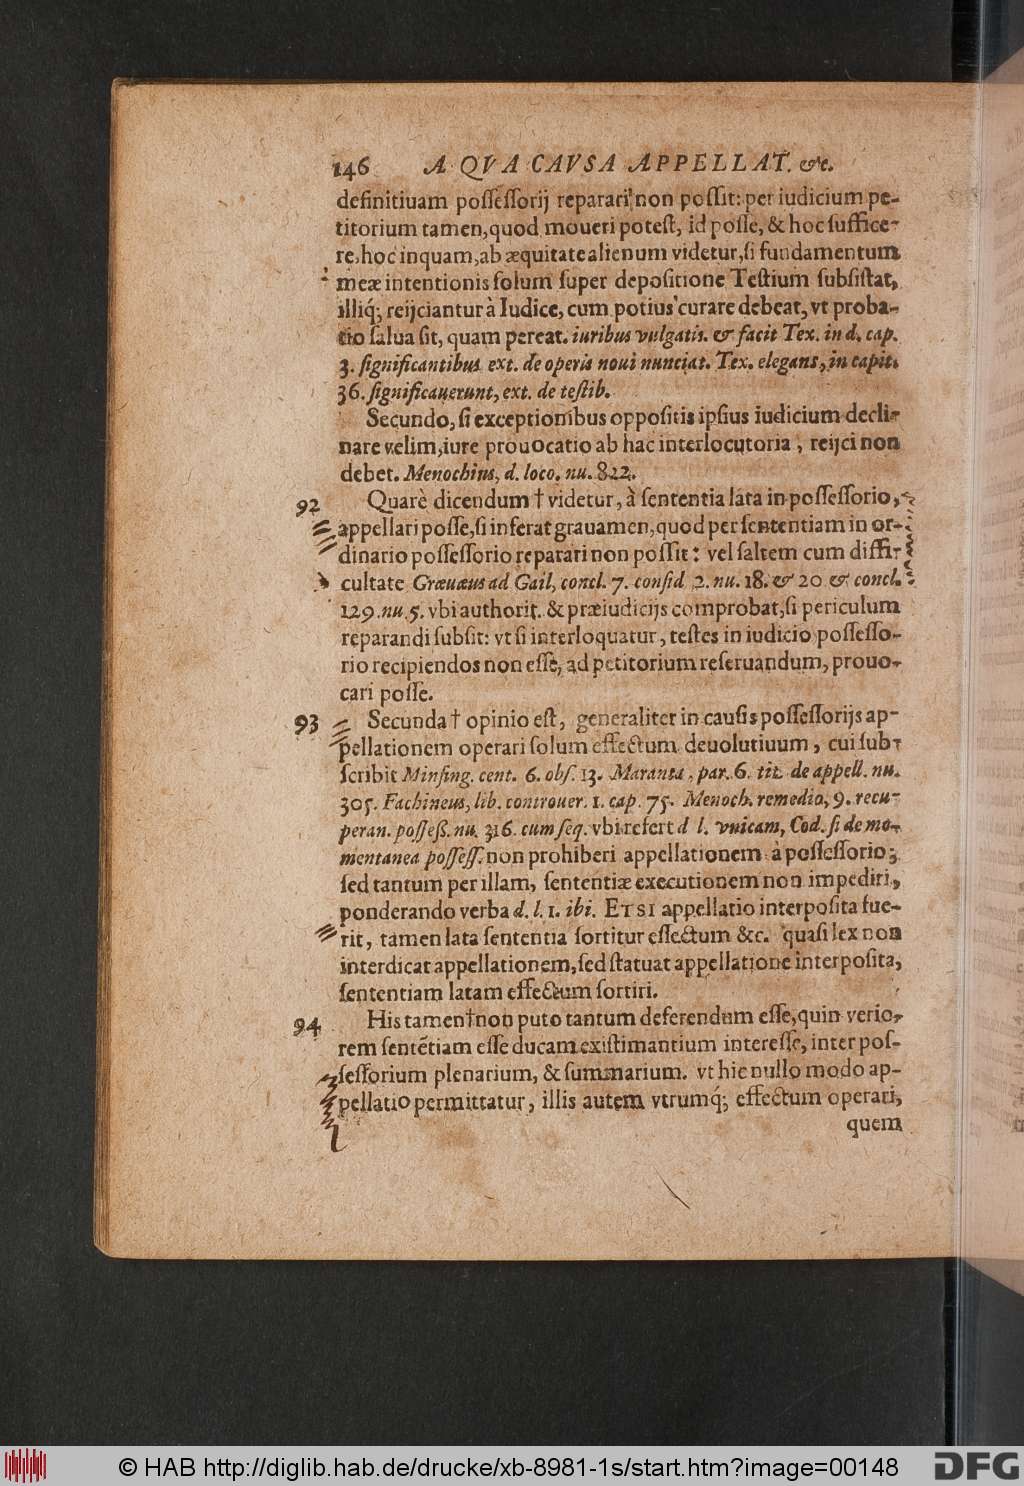 146 A QVA CAVSA APPELLAT. &c.
definitiuam poſſeſſorij reparari non poſſit: per iudicium pe-
titorium tamen, quod moueri poteſt, id poſſe, & hoc ſuffice-
re, hoc inquam, ab æquitate alienum videtur, ſi fundamentum
meæ intentionis ſolum ſuper depoſitione Teſtium ſubſiſtat,
illiq́; reijciantur à Iudice, cum potius curare debeat, vt proba-
tio ſalua ſit, quam pereat. iuribus vulgatis. & facit Tex. in d. cap.
3. ſignificantibus ext. de operis noui nunciat. Tex. elegans, in capit.
36. ſignificauerunt, ext. de teſtib.
Secundo, ſi exceptionibus oppoſitis ipſius iudicium decli-
nare velim, iure prouocatio ab hac interlocutoria, reijci non
debet. Menochius, d. loco. nu. 822.
92 Quarè dicendum † videtur, à ſententia lata in poſſeſſorio,
appellari poſſe, ſi inferat grauamen, quod per ſententiam in or-
dinario poſſeſſorio reparari non poſſit: vel ſaltem cum diffi-
cultate Græuæus ad Gail, concl. 7. conſid 2. nu. 18. & 20 & concl.
129. nu. 5. vbi authorit. & præiudicijs comprobat, ſi periculum
reparandi ſubſit: vt ſi interloquatur, teſtes in iudicio poſſeſſo-
rio recipiendos non eſſe, ad petitorium reſeruandum, prouo-
cari poſſe.
93 Secunda † opinio eſt, generaliter in cauſis poſſeſſorijs ap-
pellationem operari ſolum effectum deuolutiuum, cui ſub-
ſcribit Minſing. cent. 6. obſ. 13. Maranta, par. 6. tit. de appell. nu.
305. Fachineus, lib. controuer. 1. cap. 75. Menoch. remedio, 9. recu-
peran. poſſeß. nu. 316. cum ſeq. vbi refert d l. vnicam, Cod. ſi de mo-
mentanea poſſeſſ. non prohiberi appellationem à poſſeſſorio;
ſed tantum per illam, ſententiæ executionem non impediri,
ponderando verba d. l. 1. ibi. ETSI appellatio interpoſita fue-
rit, tamen lata ſententia ſortitur effectum &c. quaſi lex non
interdicat appellationem, ſed ſtatuat appellatione interpoſita,
ſententiam latam effectum ſortiri.
94 His tamen † non puto tantum deferendum eſſe, quin verio-
rem ſentētiam eſſe ducam exiſtimantium intereſſe, inter poſ-
ſeſſorium plenarium, & ſummarium. vt hie nullo modo ap-
pellatio permittatur, illis autem vtrumq́; effectum operari,
quem
© HAB http://diglib.hab.de/drucke/xb-8981-1s/start.htm?image=00148
DFG